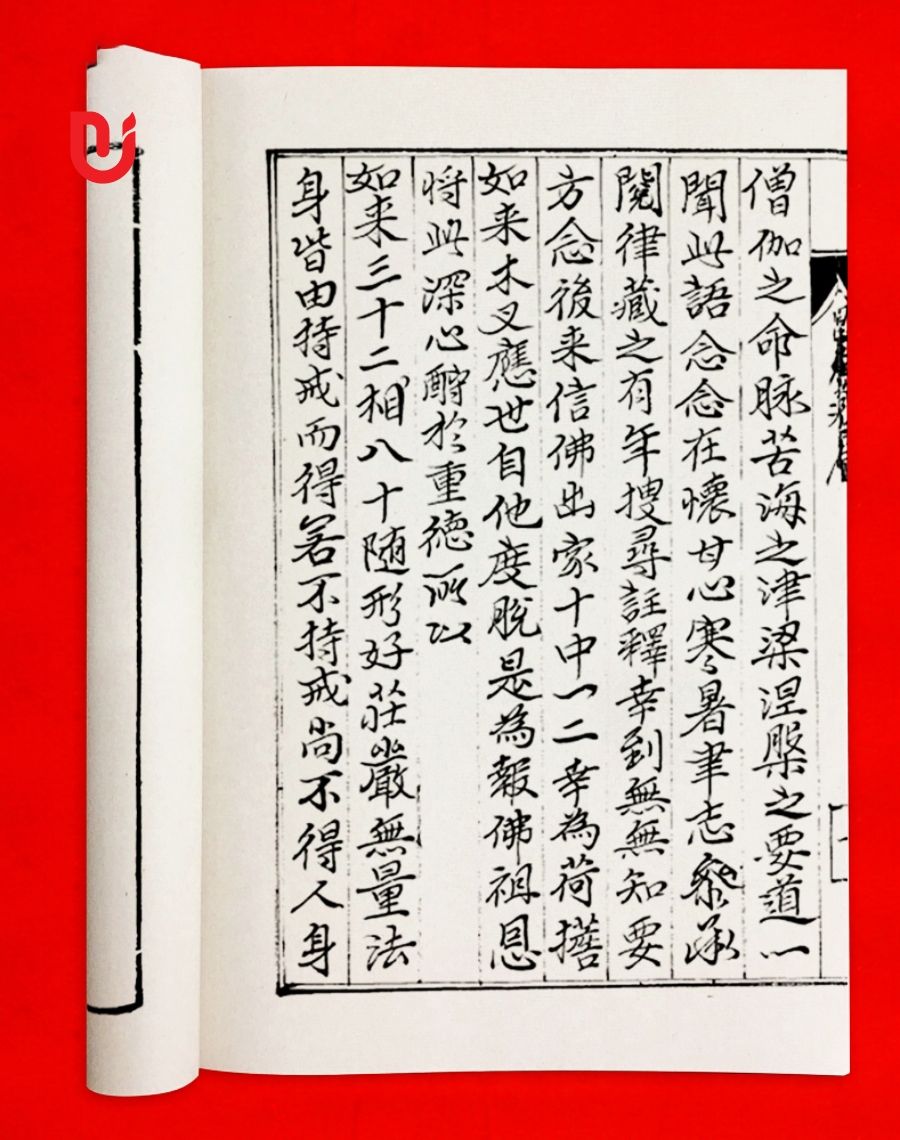 僧伽之命脉苦海之津梁涅槃之要道一
聞此語念念在懷甘心寒暑聿志参承
閱律藏之有年搜尋註釋幸到無無知要
方念後来信佛出家十中一二幸為荷擔
如来木叉應世自他度脫是為報佛祖恩
将此深心酧於重德所以
如来三十二相八十随形好莊嚴無量法
身皆由持戒而得若不持戒尚不得人身